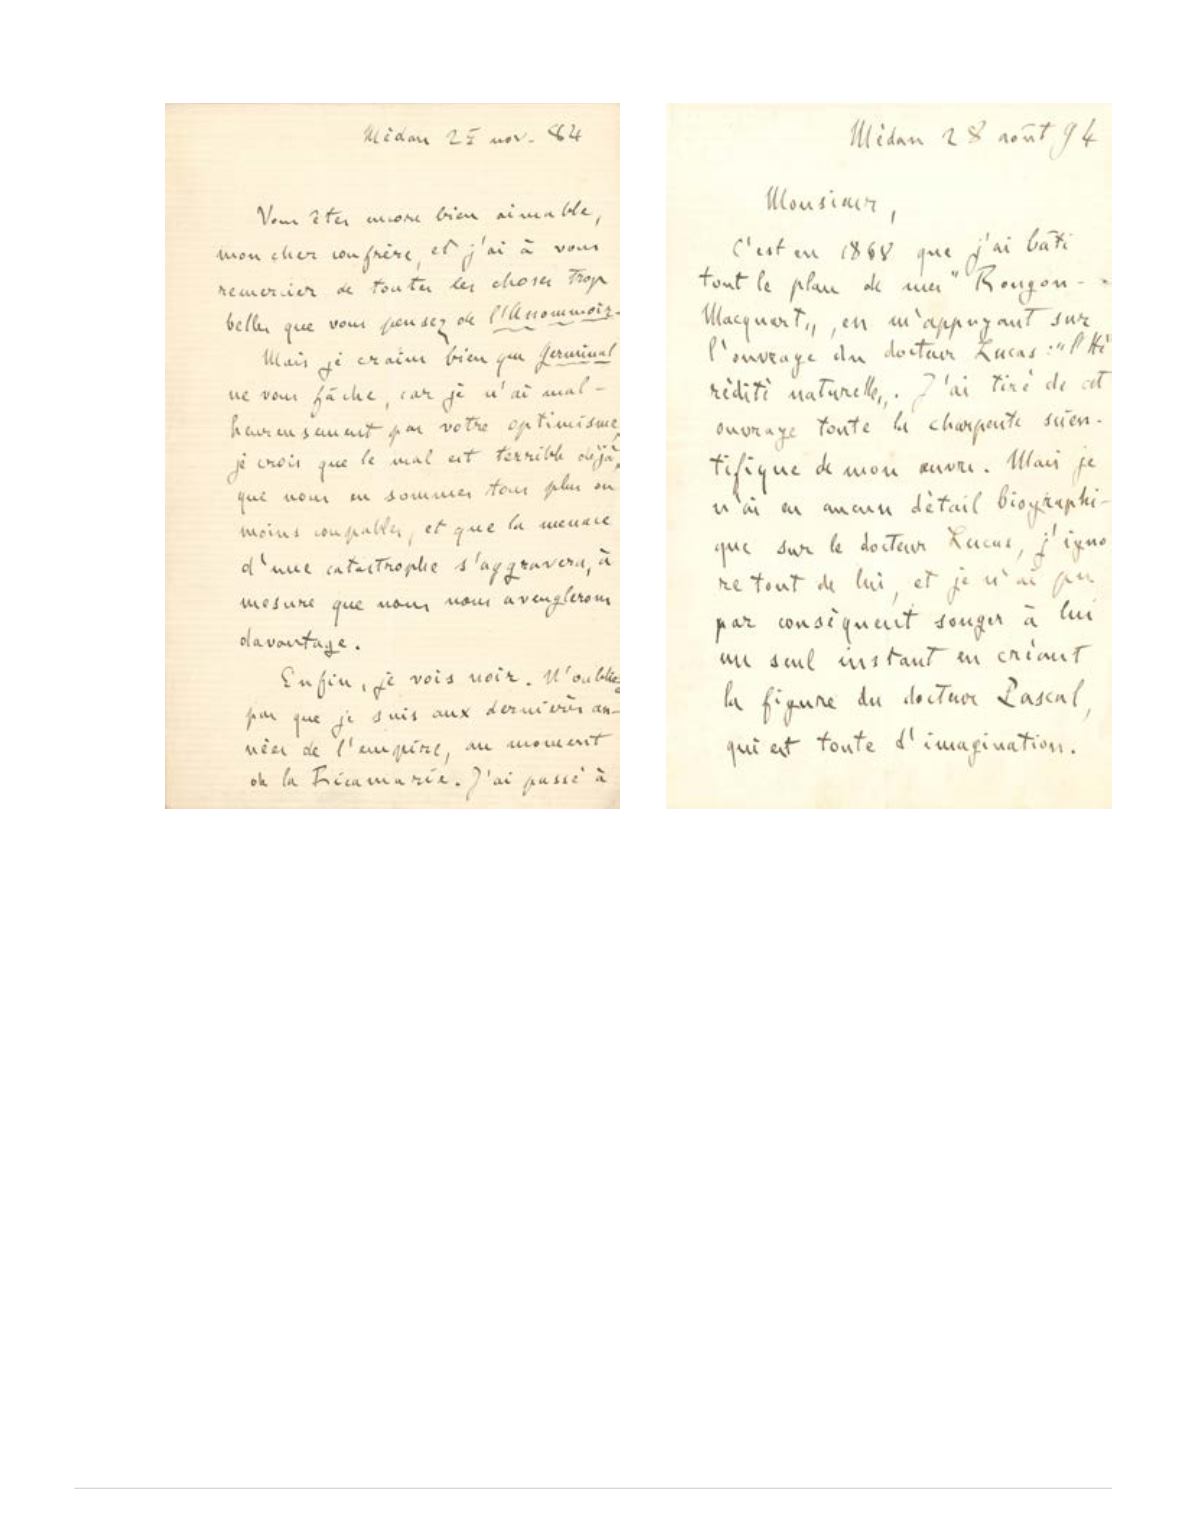 Médan 25 nov. 84
Vous êtes encore bien aimable,
mon cher confrère, et j'ai à vous
remercier de toutes les choses trop
belles que vous pensez de l'Assommoir.
Mais je crains bien que Germinal
ne vous fâche, car je n'ai mal-
heureusement pas votre optimisme,
je crois que le mal est terrible déjà,
que nous en sommes tous plus ou
moins coupables, et que la menace
d'une catastrophe s'aggravera, à
mesure que nous nous aveuglerons
davantage.
Enfin, je vois noir. N'oubliez
pas que je suis aux dernières an-
nées de l'empire, au moment
de la Ricamarie. J'ai passé à
Médan 28 août 94
Monsieur,
C'est en 1868 que j'ai bâti
tout le plan de mes "Rougon-
Macquart", en m'appuyant sur
l'ouvrage du docteur Lucas : "l'Hé
rédité naturelle". J'ai tiré de cet
ouvrage toute la charpente scien-
tifique de mon œuvre. Mais je
n'ai eu aucun détail biographi-
que sur le docteur Lucas, j'igno
re tout de lui, et je n'ai pu
par conséquent songer à lui
un seul instant en créant
la figure du docteur Pascal,
qui est toute d'imagination.